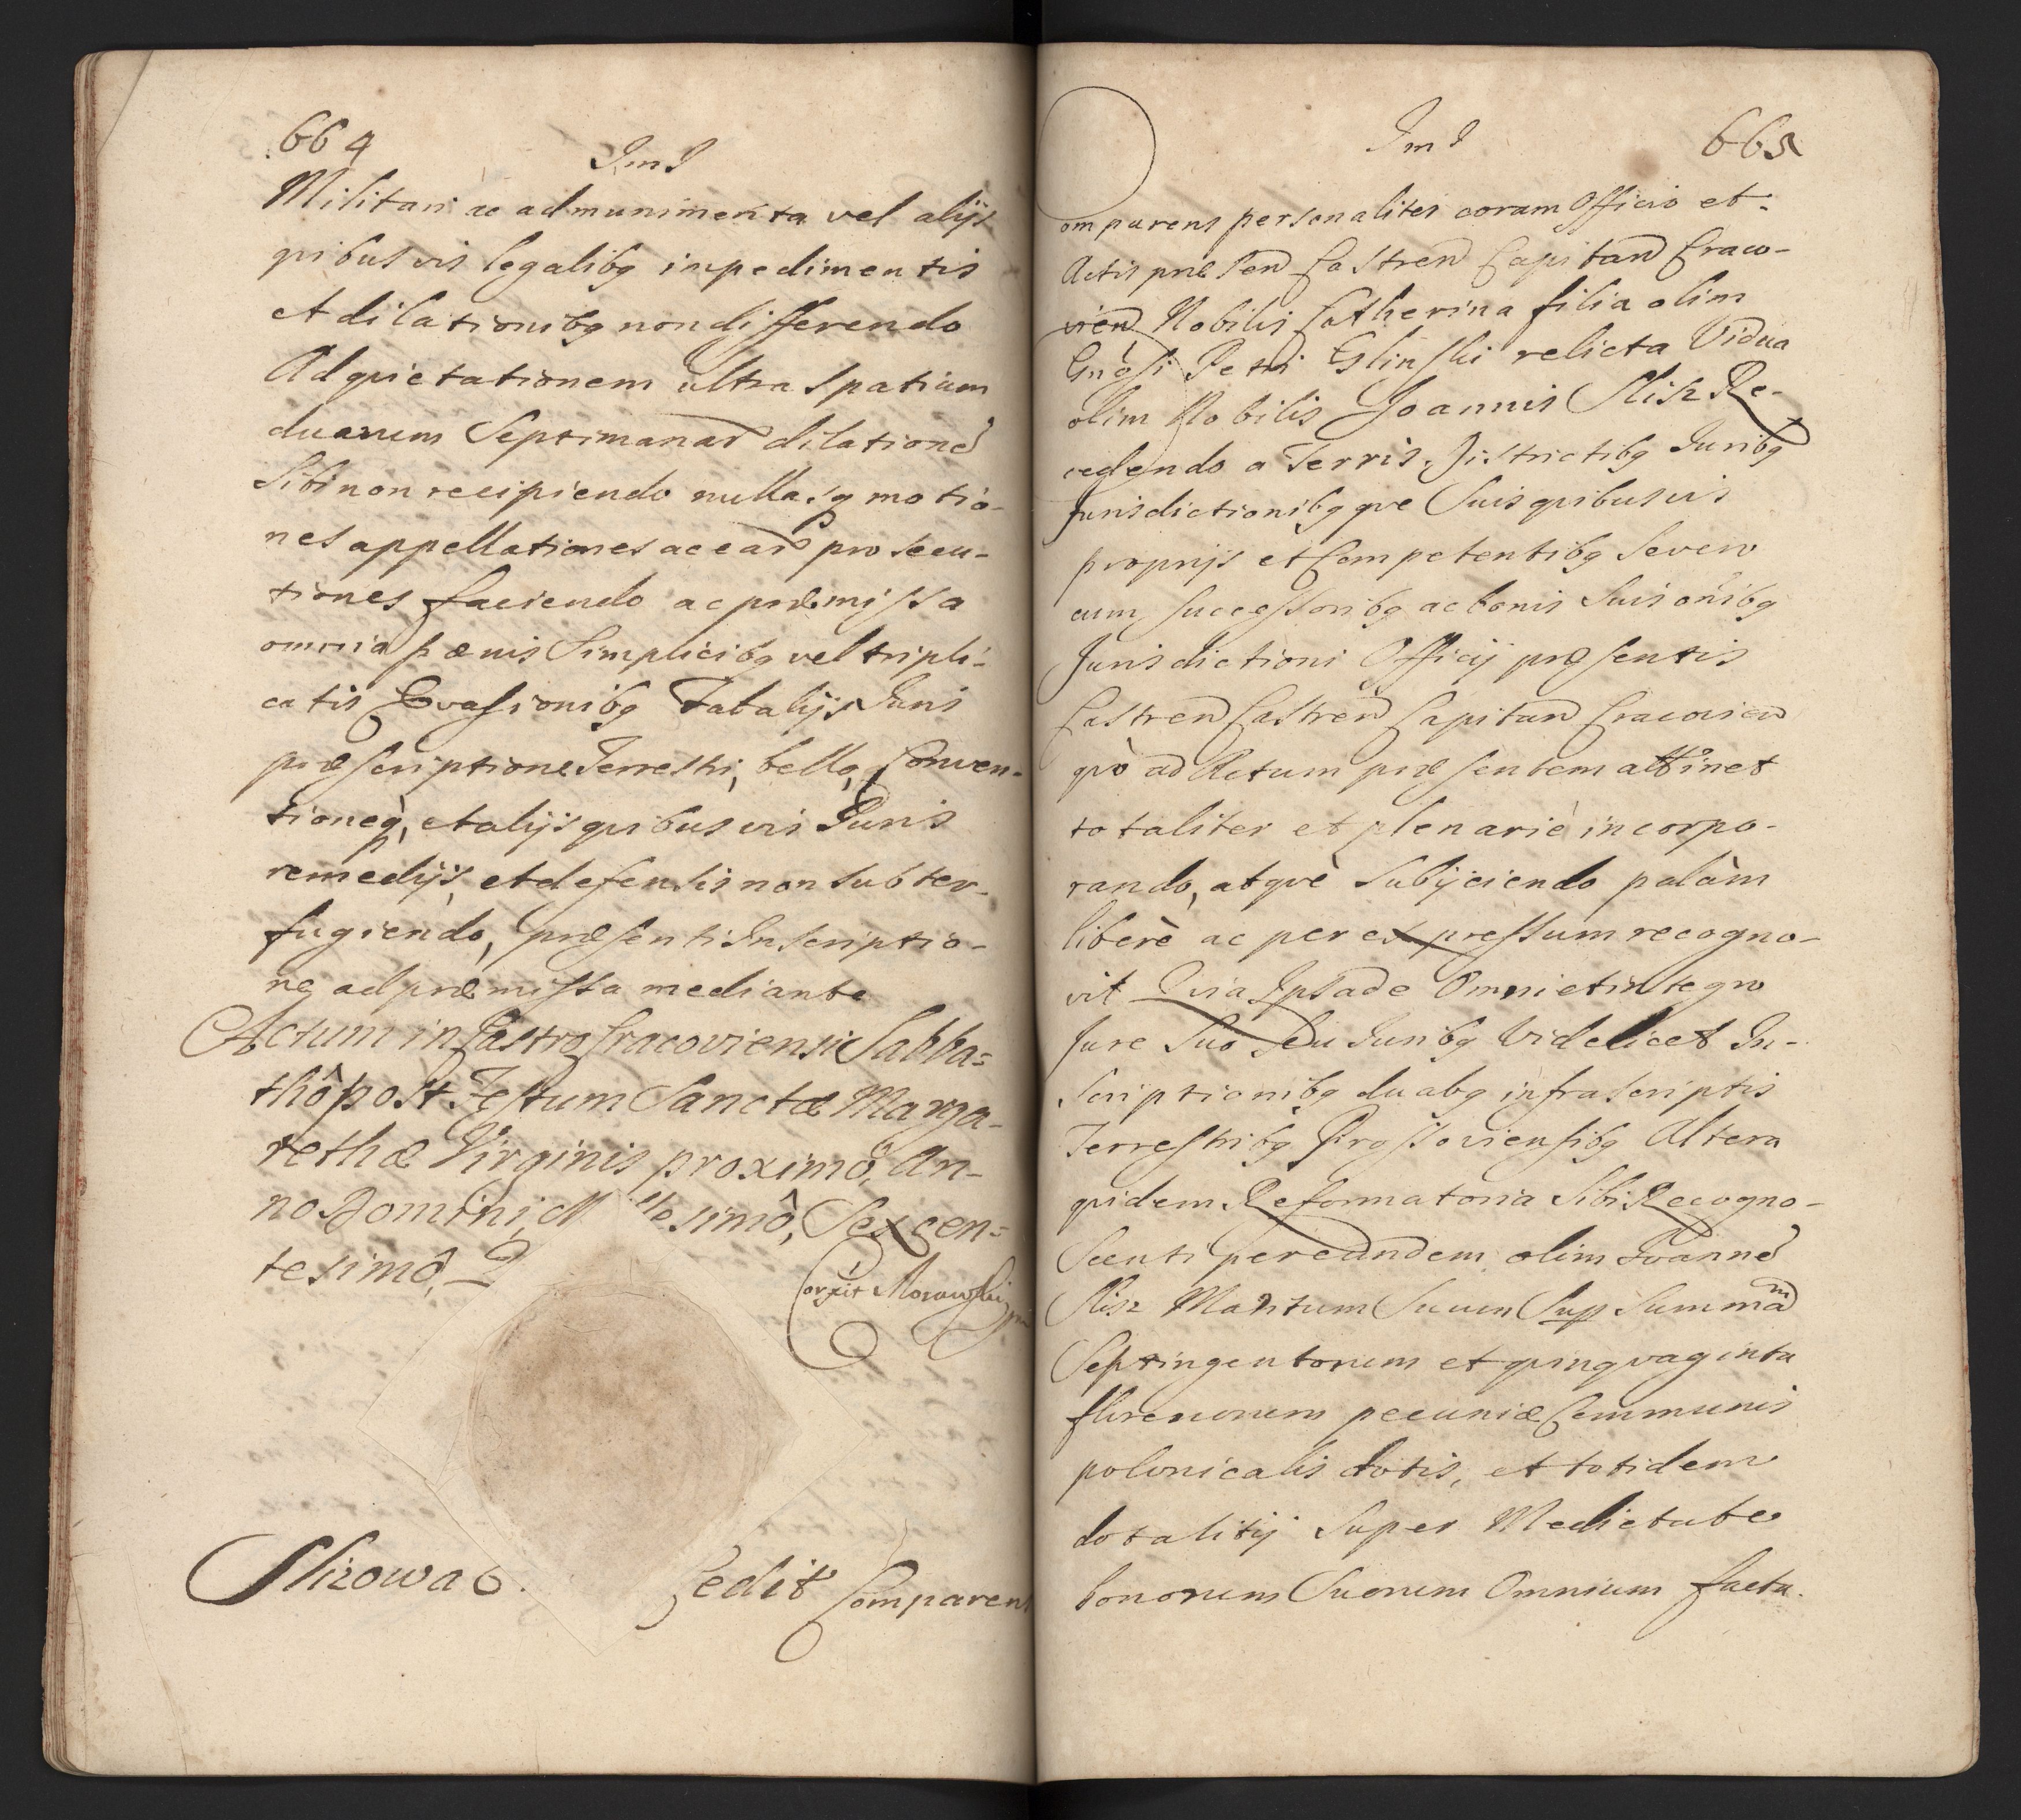 664
ImI
Militari ac ad munimenta vel alijs
quibusvis legalibq impedimentis
et dilationibq non differendo
Ad quietationem ultra spatium
duarum Septimanar dilatione
Sibi non recipiendo nullasq motio-
nes appellationes ac ear prosecu-
tiones faciendo ac præmissa
omnia pænis Simplicibq vel tripli-
catis Evasionibq Fatalijs Juris
præscriptione Terrestri, bello, Conven-
tioneq, et alijs quibusvis Juris
remedijs, et defensis non subter-
fugiendo, præsenti Inscriptio-
ne ad præmissa mediante
Actum in Castro Cracoviensi Sabba=
thô post Festum Sanctæ Marga-
rethæ Virginis proximô, An-
no Domini, M llesimô, Sexcen=
tesimô,
Corrxit Morawski
Slizowa
Cedit
Comparens
ImI
665
omparens personaliter coram Officio et
Actis præsen Castren Capitan Craco-
vien Nobilis Catherina filia olim
Gnosi Petri Glinski relicta Vidua
olim Nobilis Joannis Slisz Re-
cedendo a Terris Districtibq Juribq
Jurisdictionibqque Suis quibusvis
proprijs et Competentibq Seven
cum successoribq ac bonis Suis onibq
Jurisdictioni Officij præsentis
Castren Castren Capitan Cracovien
quò ad Actum præsentem attinet
totaliter et plenariè incorpo-
rando, atquè Subijciendo palàm
liberè ac per expressum recogno-
vit Quia Ipsa de Omni et integro
Jure Suo Seu Juribq Videlicet In-
Scriptionibq duabq infrascriptis
Terrestribq Prossoviensibq Altera
quidem Reformatoria Sibi Recogno-
Scenti per eundem olim Joanne
Slisz Maritum Suum Supp Summam
Septingentorum et quinquaginta
florenorum pecuniæ Communis
polonicalis dotis, et totidem
dotalitij Super Medietate
bonorum Suorum Omnium facta.